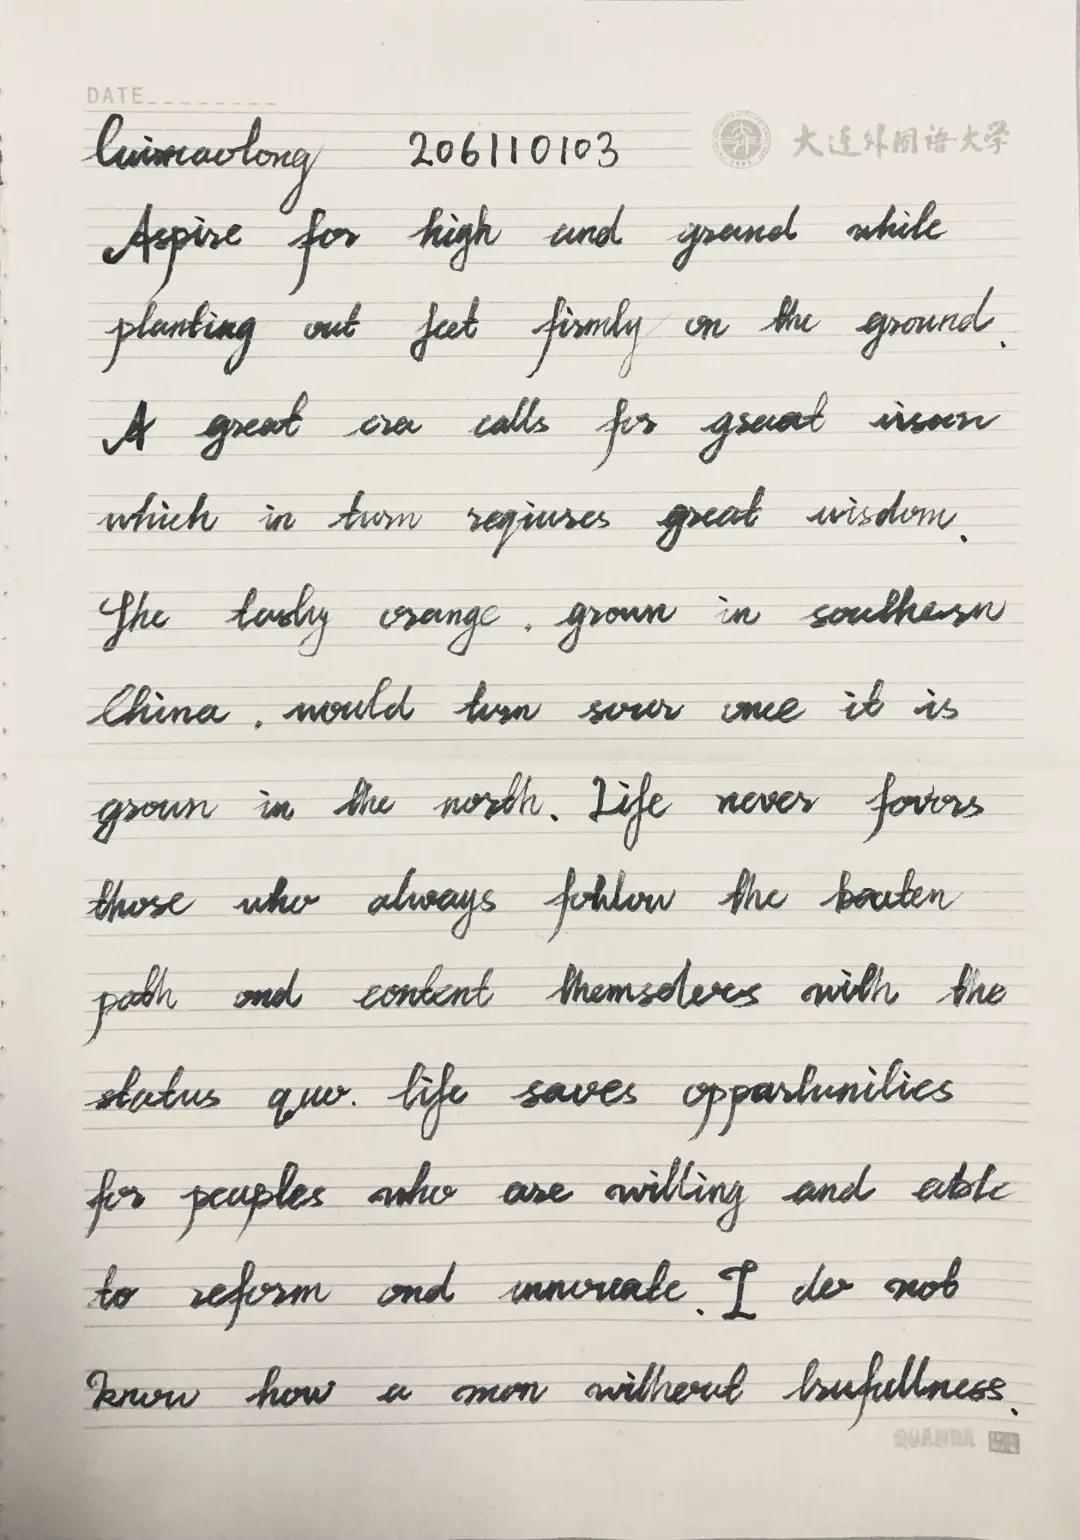 DATE
206110103
大连外国语大学
Aspire for high and grand while
planting out feet firmly on the ground.
A great era calls for great
which in turn reqiuses great wisdom.
The tashy orange, groun in southern
China, would turn sour once it is
groun in the north. Life never fovors
those who always fohlow the beaten
path and content themselves with the
status quo. life saves opportunities
for peuples who are willing and able
to reform and I do not
know how a man without
QUANDA